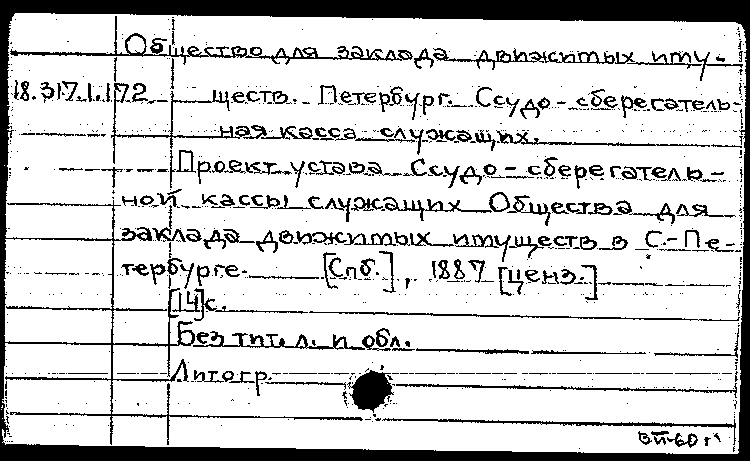 Общество для заклада движимых иму-
18.317.1.172 ществ. Петербург. Ссудо-сберегатель-
ная касса служащих.
Проект устава Ссудо-сберегатель-
ной кассы служащих Общества для
заклада движимых имуществ в С.-Пе-
тербурге. [Спб.], 1887 [ценз.]
[14]с.
Без тит. л. и обл.
Литогр.